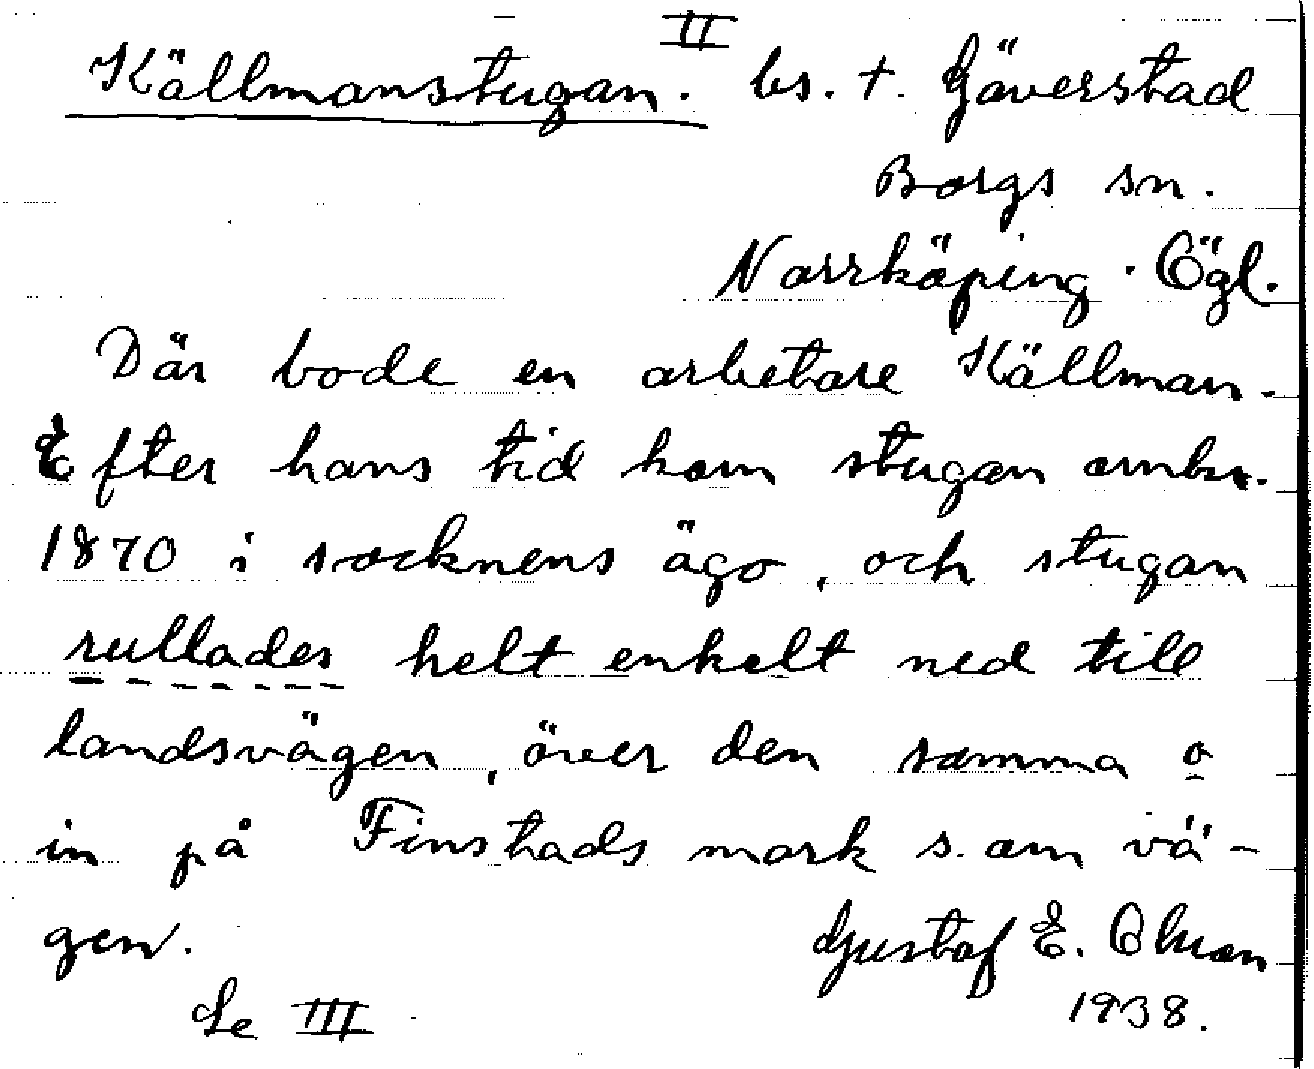 Källmanstugan. II bs. + Gäverstad
Borgs sn.
Norrköping. Ögl.
Där bode en arbetare Källman.
Efter hans tid kom stugan omkr.
1870 i socknens ägo, och stugan
rullades helt enkelt ned till
landsvägen, över den samma o
in på Finstads mark s. om vä-
gen. Gustaf E. Ohman
Se III 1938.